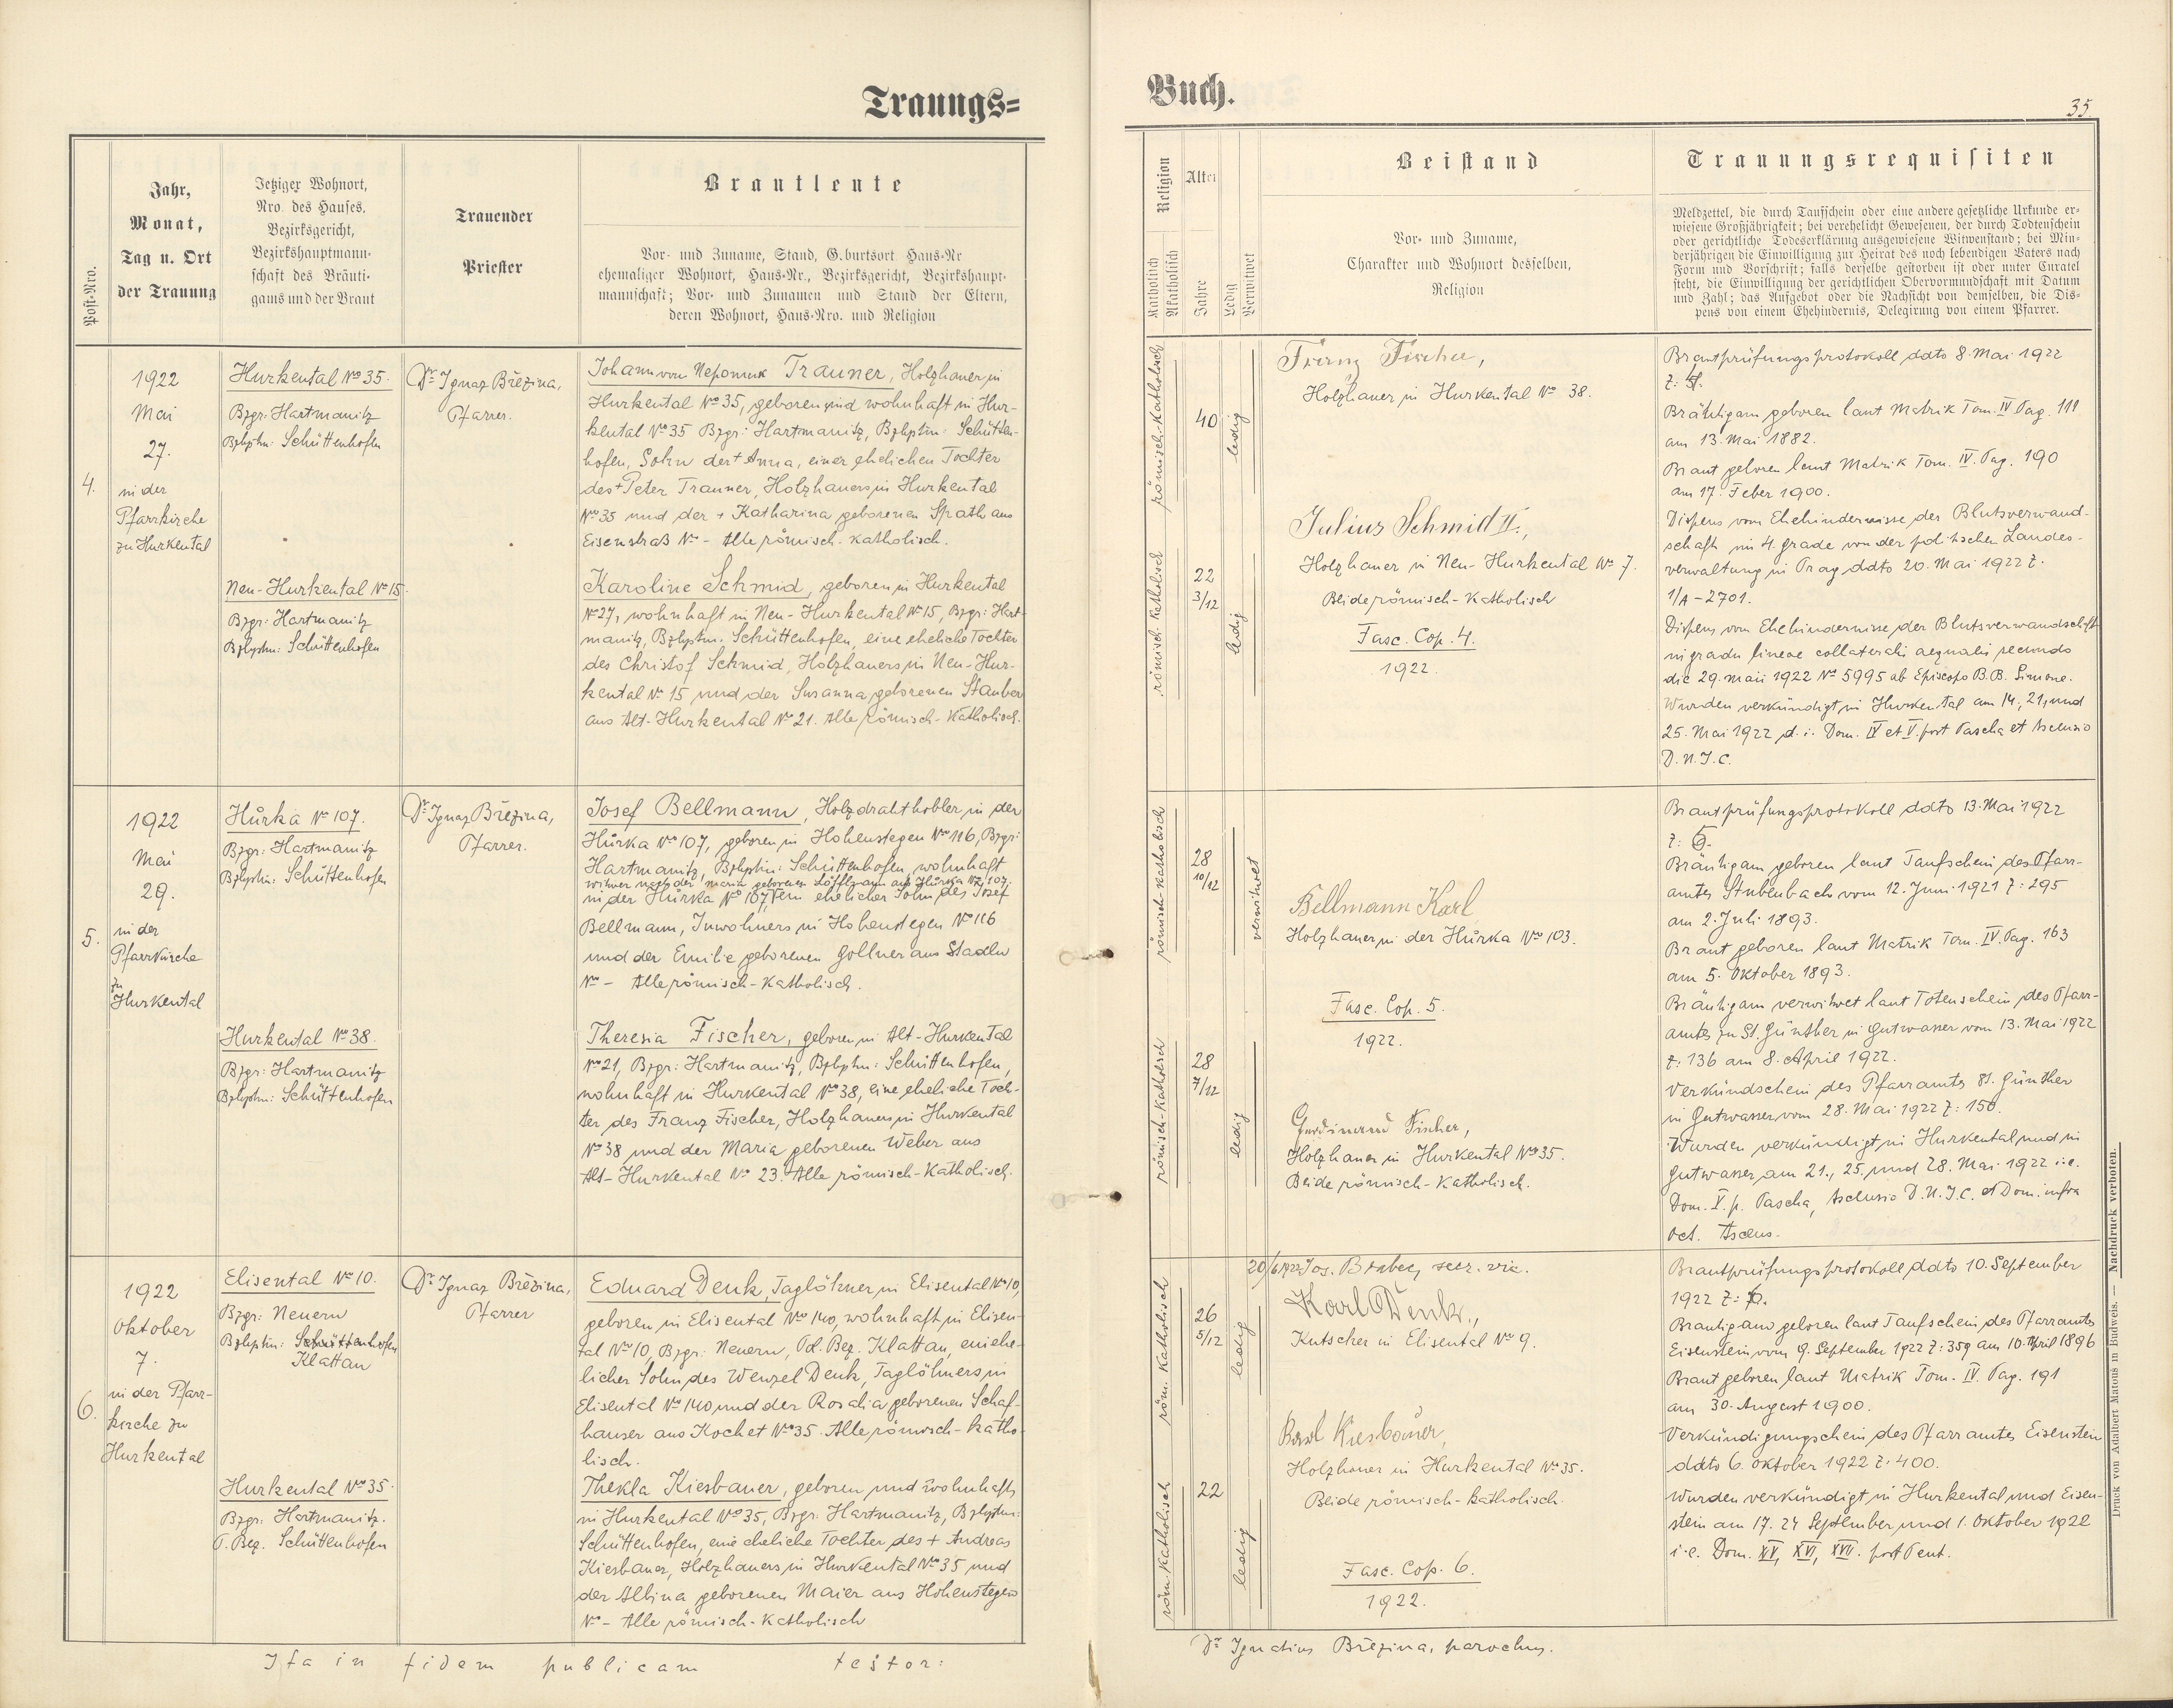 Trauungs=
Buch.
35
Post-Nro.
Jahr,
Monat,
Tag u. Ort
der Trauung
Jetziger Wohnort,
Nro. des Hauses,
Bezirksgericht,
Bezirkshauptmann-
schaft des Bräuti-
gams und der Braut
Trauender
Priester
Brautleute
Vor- und Zuname, Stand, Geburtsort, Haus-Nr
ehemaliger Wohnort, Haus-Nr., Bezirksgericht, Bezirkshaupt-
mannschaft; Vor- und Zunamen und Stand der Eltern,
deren Wohnort, Haus-Nro. und Religion
Religion
Katholisch
Akatholisch
Alter
Jahre
Ledig
Verwitwet
Beistand
Vor- und Zuname,
Charakter und Wohnort desselben,
Religion
Trauungsrequisiten
Meldzettel, die durch Taufschein oder eine andere gesetzliche Urkunde er-
wiesene Großjährigkeit; bei verehelicht Gewesenen, der durch Todtenschein
oder gerichtliche Todeserklärung ausgewiesene Witwenstand; bei Min-
derjährigen die Einwilligung zur Heirat des noch lebendigen Vaters nach
Form und Vorschrift; falls derselbe gestorben ist oder unter Curatel
steht, die Einwilligung der gerichtlichen Obervormundschaft mit Datum
und Zahl; das Aufgebot oder die Nachsicht von demselben, die Dis-
pens von einem Ehehindernis, Delegirung von einem Pfarrer.
4.
1922
Mai
27.
in der
Pfarrkirche
zu Hurkental
Hurkental No 35.
Bzgr: Hartmanitz
Bzhptm: Schüttenhofen
Neu-Hurkental No 15
Bzgr: Hartmanitz
Bzhptm: Schüttenhofen
Dr. Ignaz Březina,
Pfarrer.
Johann von Nepomuk Trauner, Holzhauer in
Hurkental No 35, geboren und wohnhaft in Hur-
kental No 35 Bzgr: Hartmanitz, Bzhptm: Schütten-
hofen, Sohn der + Anna, einer ehelichen Tochter
des + Peter Trauner, Holzhauers in Hurkental
No 35 und der + Katharina geborenen Spath aus
Eisenstraß No - Alle römisch-katholisch.
Karoline Schmid, geboren in Hurkental
No 27, wohnhaft in Neu-Hurkental No 15, Bzgr: Hart-
manitz, Bzhptm. Schüttenhofen, eine eheliche Tochter
des Christof Schmid, Holzhauers in Neu-Hur-
kental No 15 und der Susanna geborenen Stauber
aus Alt-Hurkental No 21. Alle römisch-katholisch.
römisch-katholisch
40
ledig
römisch katholisch
22
3/12
ledig
Franz Fischer,
Holzhauer in Hurkental No 38.
Julius Schmid II.,
Holzhauer in Neu-Hurkental No 7.
Beide römisch-katholisch
Fasc. Cop. 4.
1922.
Brautprüfungsprotokoll ddto 8. Mai 1922
Z:
Bräutigam geboren laut Matrik Tom. IV Pag. 111
am 13. Mai 1882.
Braut geboren laut Matrik Tom. IV. Pag. 190
am 17. Feber 1900.
Dispens vom Ehehindernisse der Blutsverwand-
schaft im 4. grade von der politischen Landes-
verwaltung in Prag ddto 20. Mai 1922 Z.
1/A-2701.
Dispens vom Ehehindernisse der Blutsverwandschaft
in gradu lineae collateralis aequalis secundo
die 29. maii 1922 No 5995 ab Episcopo B.B. Simone.
Wurden verkündigt in Hurkental am 14, 21, und
25. Mai 1922 d. i. Dom. IV et V. post Pascha et Ascensio
D.N.J.C.
5.
1922
Mai
29.
in der
Pfarrkirche
zu
Hurkental
Hůrka No 107.
Bzgr: Hartmanitz
Bzhptm: Schüttenhofen
Hurkental No 38.
Bzgr: Hartmanitz
Bzhptm: Schüttenhofen
Dr. Ignaz Březina,
Pfarrer.
Josef Bellmann, Holzdrahthobler in der
Hůrka No 107, geboren in Hohenstegen No 116, Bzgr:
Hartmanitz, Bzhptm: Schüttenhofen, wohnhaft
witwer nach der Maria geborenen Löfflmann aus Hůrka No 107,
in der Hůrka No 107, ein ehelicher Sohn des Josef
Bellmann, Inwohners in Hohenstegen No 116
und der Emilie geborenen Gollner aus Stadln
No - Alle römisch-katholisch.
Theresia Fischer, geboren in Alt-Hurkental
No 21, Bzgr: Hartmanitz, Bzhptm: Schüttenhofen,
wohnhaft in Hurkental No 38, eine eheliche Toch-
ter des Franz Fischer, Holzhauers in Hurkental
No 38 und der Maria geborenen Weber aus
Alt-Hurkental No 23. Alle römisch-katholisch.
römisch-katholisch
28
10/12
verwitwet
römisch-katholisch
28
7/12
ledig
Bellmann Karl,
Holzhauer in der Hůrka No 103.
Fasc. Cop. 5.
1922.
Ferdinand Fischer,
Holzhauer in Hurkental No 35.
Beide römisch-katholisch.
Brautprüfungsprotokoll ddto 13. Mai 1922
Z:
Bräutigam geboren laut Taufschein des Pfarr-
amtes Stubenbach vom 12. Juni 1921 Z: 295
am 2. Juli 1893.
Braut geboren laut Matrik Tom. IV. Pag. 163
am 5. Oktober 1893.
Bräutigam verwitwet laut Totenschein des Pfarr-
amtes zu St. Günther in Gutwasser vom 13. Mai 1922
Z: 136 am 8. April 1922.
Verkündschein des Pfarramtes St. Günther
in Gutwasser vom 28. Mai 1922 Z: 150.
Wurden verkündigt in Hurkental und in
Gutwasser am 21., 25. und 28. Mai 1922 i.e.
Dom. V. p. Pascha, Ascensio D.N.J.C. et Dom. infra
Oct. Ascens.
6.
1922
Oktober
7.
in der Pfarr-
kirche zu
Hurkental
Elisental No 10.
Bzgr: Neuern
Bzhptm: Schüttenhofen
Klattau
Hurkental No 35.
Bzgr: Hartmanitz.
P. Bez. Schüttenhofen
Dr. Ignaz Březina,
Pfarrer
Eduard Denk, Taglöhner in Elisental No 10,
geboren in Elisental No 140, wohnhaft in Elisen-
tal No 10, Bzgr: Neuern, Pol. Bez. Klattau, ein ehe-
licher Sohn des Wenzel Denk, Taglöhners in
Elisental No 140 und der Rosalia geborenen Schaf-
hauser aus Kochet No 35. Alle römisch-katho-
lisch.
Thekla Kiesbauer, geboren und wohnhaft,
in Hurkental No 35, Bzgr: Hartmanitz, Bzhptm:
Schüttenhofen, eine eheliche Tochter des + Andreas
Kiesbauer, Holzhauers in Hurkental No 35 und
der Albina geborenen Maier aus Hohenstegen
No - Alle römisch-katholisch
röm. katholisch
26
5/12
ledig
röm. katholisch
22
ledig
20/6 1922 Jos. secr. vic.
Karl Denk,
Kutscher in Elisental No 9.
Kiesbauer,
Holzhauer in Hurkental No 35.
Beide römisch-katholisch.
Fasc. Cop. 6.
1922.
Brautprüfungsprotokoll ddto 10. September
1922 Z:
Bräutigam geboren laut Taufschein des Pfarramtes
Eisenstein vom 9. September 1922 Z: 359 am 10. April 1896
Braut geboren laut Matrik Tom. IV. Pag. 191
am 30. August 1900.
Verkündigungschein des Pfarramtes Eisenstein
ddto 6. Oktober 1922 Z. 400.
Wurden verkündigt in Hurkental und Eisen-
stein am 17. 24 September und 1. Oktober 1922
i.e. Dom. XV, XVI, XVII. post Pent.
Ita in fidem publicam testor:
Dr. Ignatius Březina, parochus.
Druck von Adalbert Matouš in Budweis. — Nachdruck verboten.